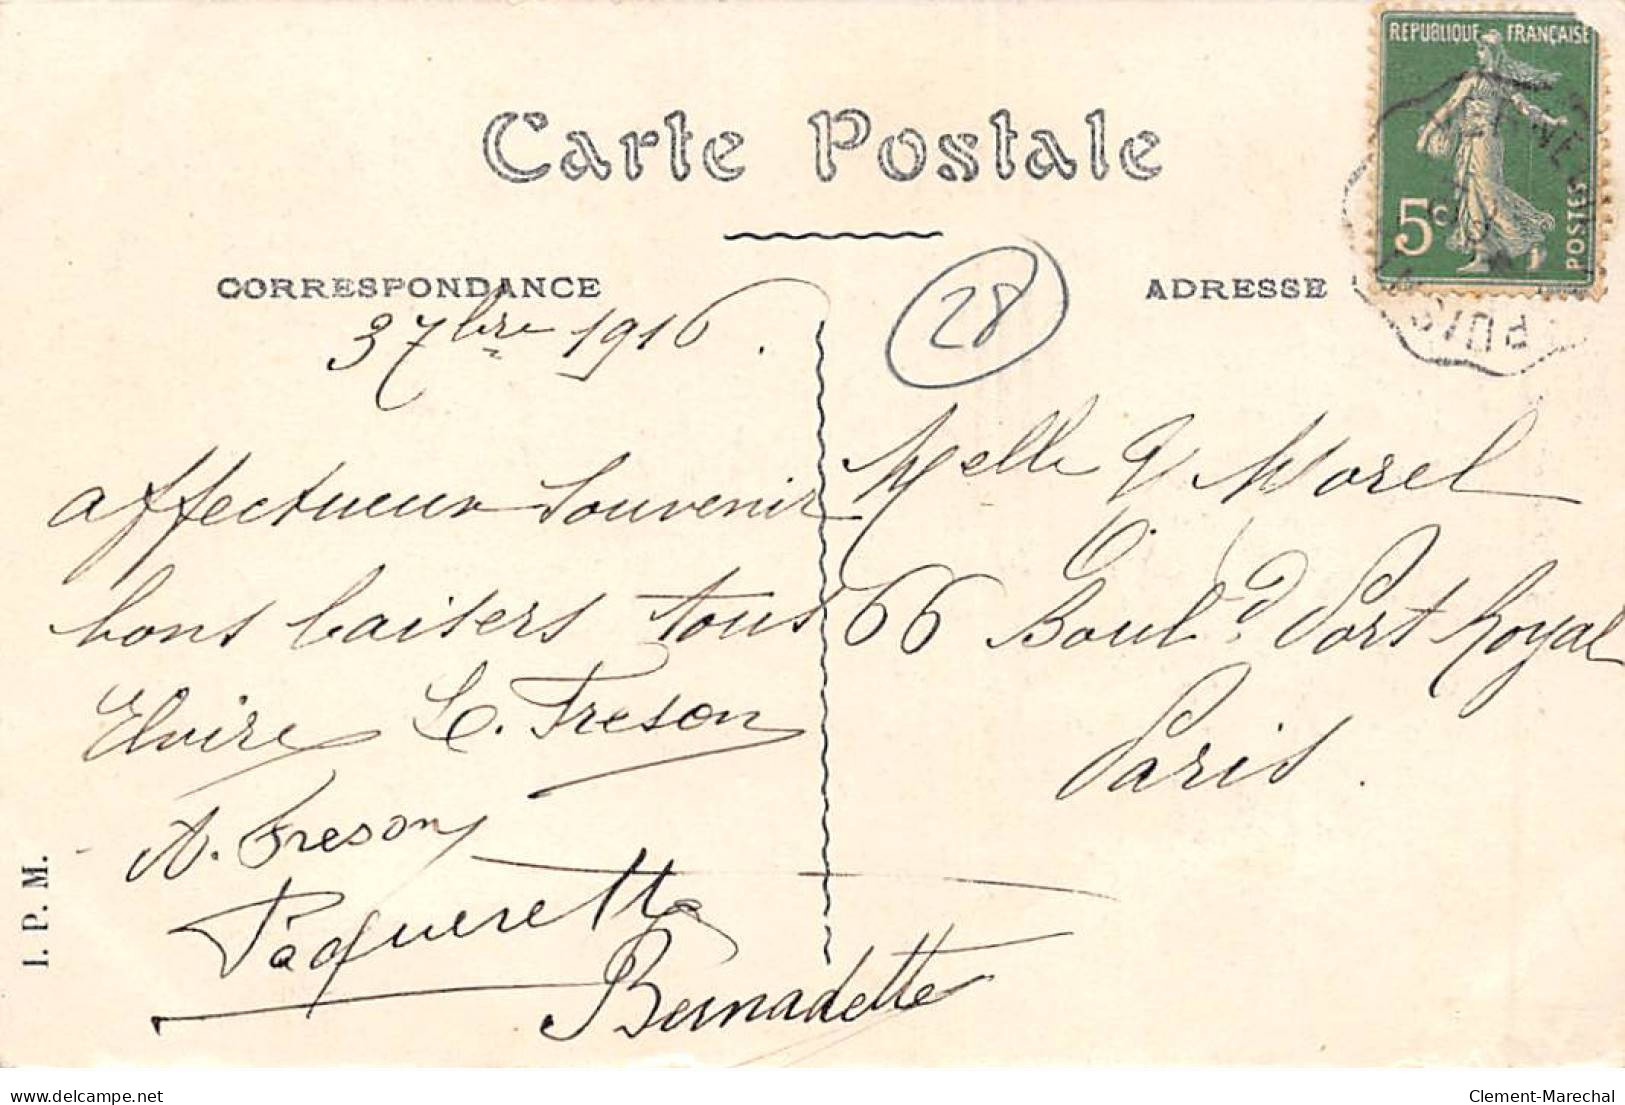 Carte Postale
CORRESPONDANCE
ADRESSE
REPUBLIQUE FRANÇAISE
5c
POSTES
28
3 7bre 1916.
affectueux souvenir
bons baisers tous
Elvire L. Freson
A. Freson
Pâquerette
Bernadette
Melle Y Morel
66 Boul.d Port Royal
Paris.
I. P. M.
delcampe.net
Clement-Marechal